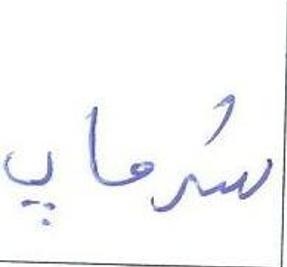 سُرماپ